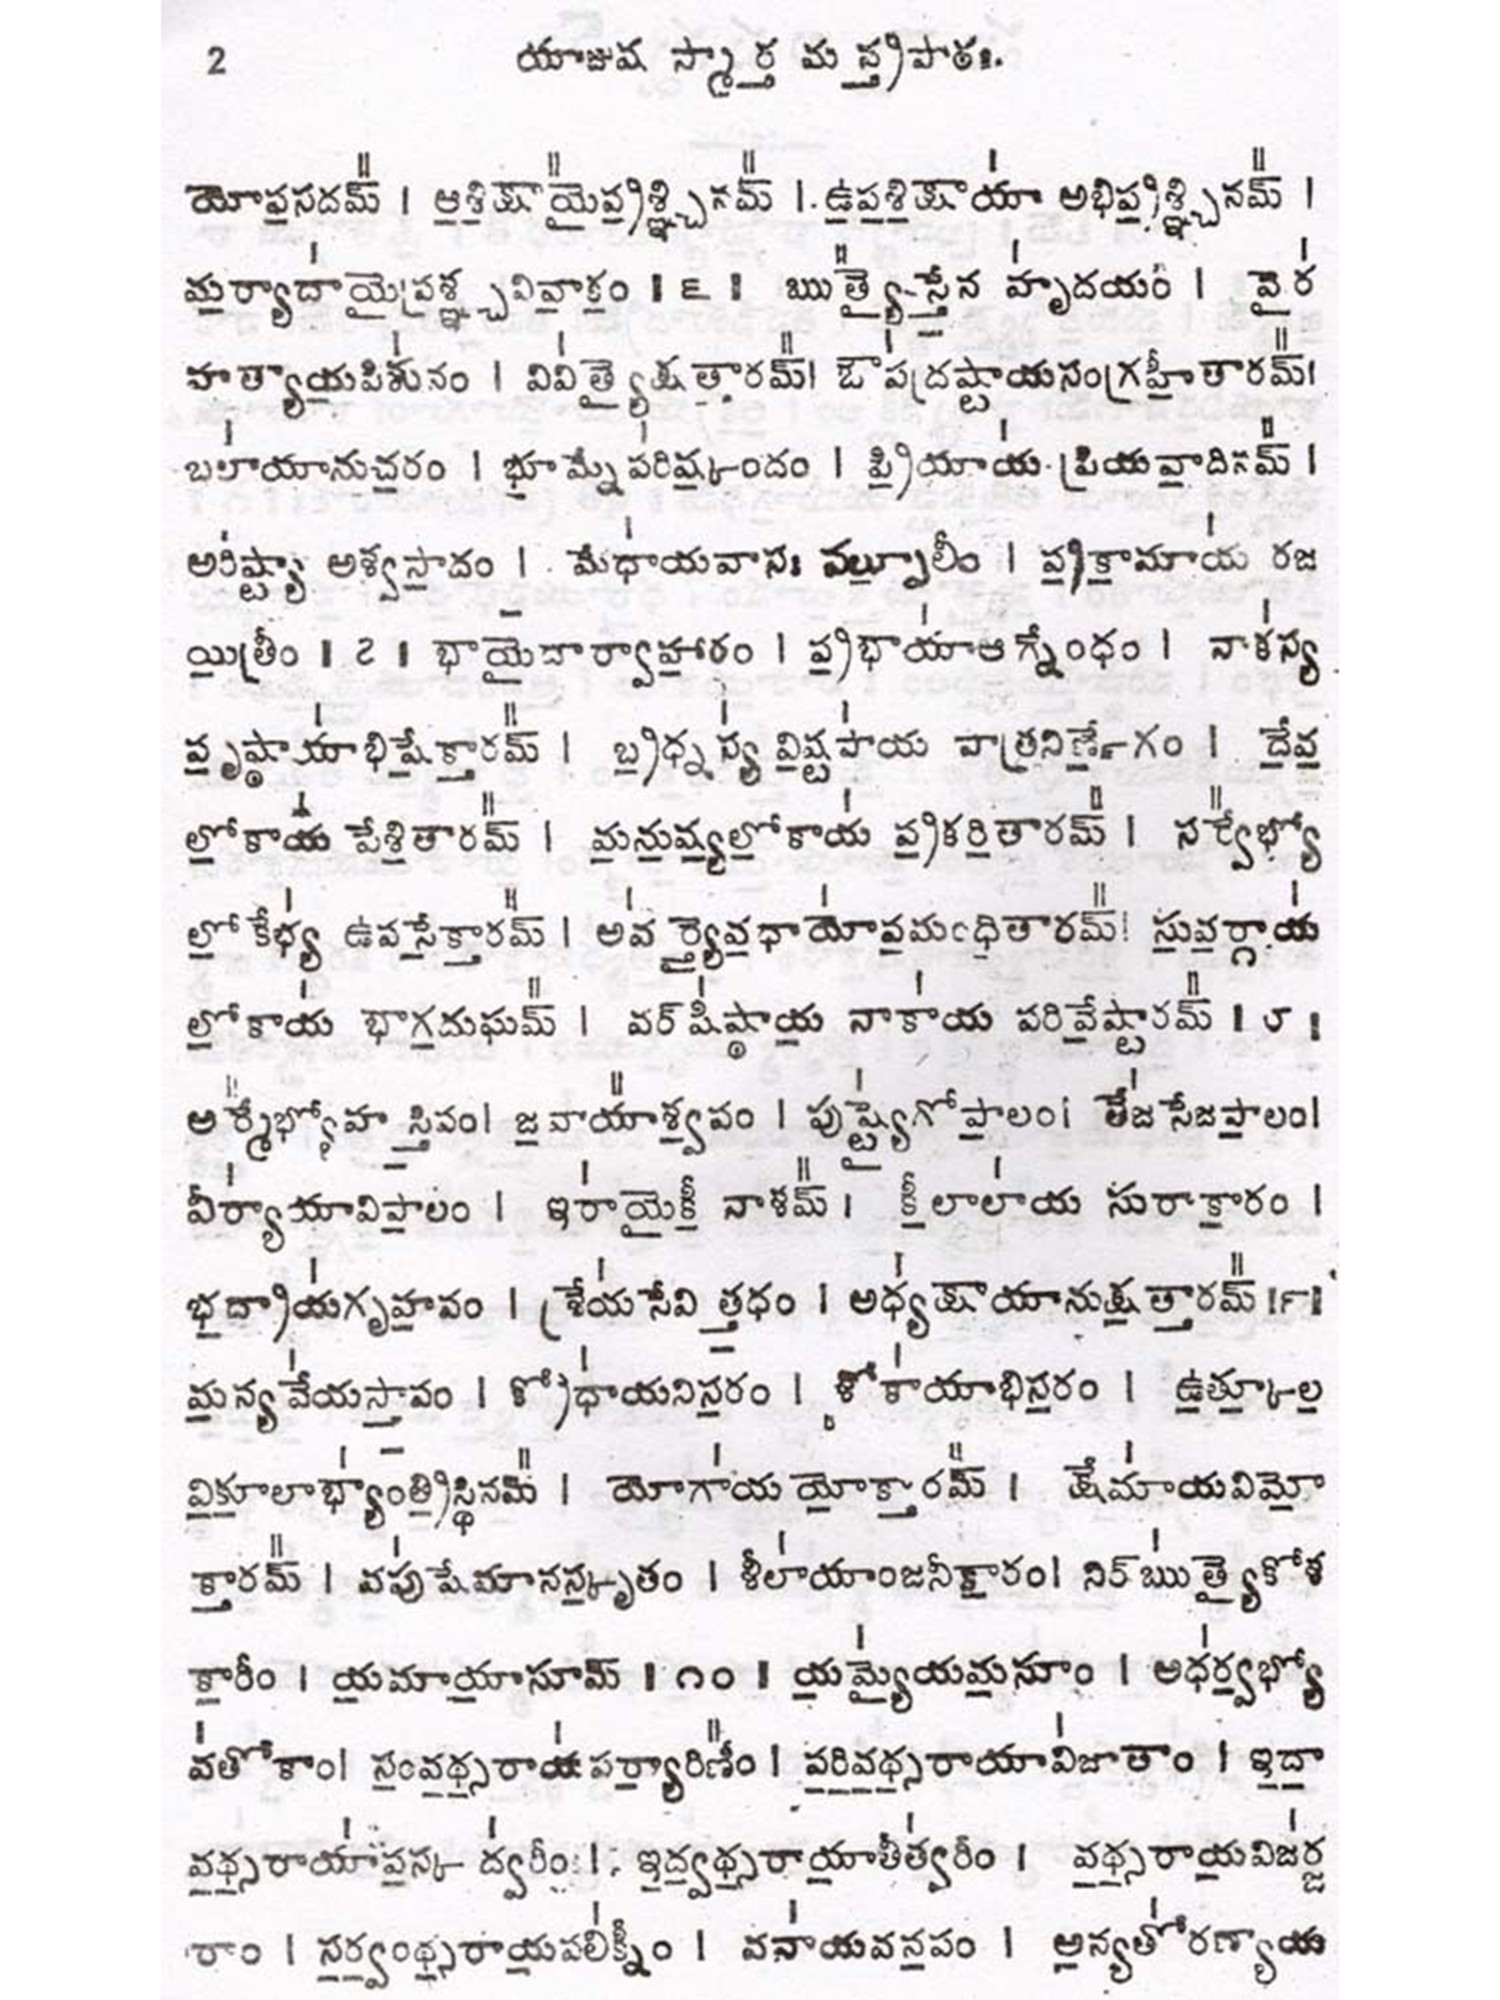 2 యాజుష స్మార్త మన్త్రపాఠః.
యోపసదమ్᳚ । ఆ॒శి॒క్షాయై᳚ప్ర॒శ్ఞ్చినమ్᳚ । ఉ॒ప॒శి॒క్షాయా॑ అభిప్ర॒శ్ఞ్చినమ్᳚ ।
మ॒ర్యాదా॑యైప్రశ్ఞ్చవివా॒కం ॥ ౬ ॥ ఋత్యై᳚స్తే॒న హృ॑దయం । వైర॑
హత్యాయ॒పిశు॑నం । వివి॑త్యైక్ష॒త్తారమ్᳚। ఔప॑ద్రష్టాయసంగ్రహీ॒తారమ్᳚।
బలా॑యానుచ॒రం । భూమ్నేప॑రిష్క॒ందం । ప్రి॒యాయ॑ ప్రియవా॒దినమ్᳚ ।
అరి॑ష్ట్యా అశ్వసా॒దం । మేధా॑యవాసః పల్పూ॒లీం । ప్ర॒కా॒మాయ॑ రజ
యి॒త్రీం ॥ ౭ ॥ భాయై॑దార్వాహా॒రం । ప్ర॒భాయా॑ఆగ్నే॒ంధం । నాక॑స్య
పృ॒ష్ఠాయా॑భిషే॒క్తారమ్᳚ । బ్ర॒ధ్నస్య॑ వి॒ష్టపా॑య పాత్రనిర్ణే॒గం । దే॒వ॒
లో॒కాయ॑ పేశి॒తారమ్᳚ । మ॒ను॒ష్య॒లో॒కాయ॑ ప్రకరి॒తారమ్᳚ । సర్వే᳚భ్యో
లో॒కేభ్య॑ ఉపసే॒క్తారమ్᳚ । అవ॑ర్త్యైవ॒ధాయో॑పమంథి॒తారమ్᳚। సు॒వ॒ర్గాయ॑
లో॒కాయ॑ భాగ॒దుఘమ్᳚ । వర్‌షి॑ష్ఠాయ॒ నాకా॑య పరివే॒ష్టారమ్᳚ ॥ ౮ ॥
అర్మే᳚భ్యోహస్తి॒పం। జ॒వాయా᳚శ్వ॒పం । పుష్ట్యై॑గోపా॒లం। తేజ॑సేజపా॒లం।
వీర్యా॑యావిపా॒లం । ఇరా॑యైకీ॒ నాశమ్᳚ । కీ॒లాలా॑య సురాకా॒రం ।
భ॒ద్రాయ॑గృహ॒పం । శ్రేయ॑సేవిత్త॒ధం । అధ్య॑క్షాయానుక్ష॒త్తారమ్᳚ ॥౯॥
మ॒న్యవే॑యస్తా॒పం । క్రోధా॑యనిస॒రం । శోకా॑యాభిస॒రం । ఉ॒త్కూ॒ల॒
వి॒కూ॒లాభ్యా॑ంత్రి॒స్థినమ్᳚ । యోగా॑య యో॒క్తారమ్᳚ । క్షేమా॑యవిమో॒
క్తారమ్᳚ । వపు॑షేమానస్కృ॒తం । శీలా॑యాంజనీకా॒రం। నిర్‌ఋ॑త్యైకోశ
కా॒రీం । య॒మాయా॒సూమ్ ॥ ౧౦ ॥ య॒మ్యై॑యమ॒సూం । అథ॑ర్వభ్యో॒
వ॑తోకాం। సం॒వ॒థ్స॒రాయ॑పర్యా॒రిణీ᳚ం । ప॒రి॒వ॒థ్స॒రాయావి॑జాతాం । ఇ॒దా॒
వ॒థ్స॒రాయా॑పస్క॒ ద్వ॑రీం । ఇ॒ద్వ॒థ్స॒రాయా॒తీత్వ॑రీం । వ॒థ్స॒రాయ॒విజ॑ర్జ
రాం । స॒ర్వ॒ంథ్స॒రాయ॒పలి॑క్నీం । వనా॑యవన॒పం । అ॒న్యతో॑రణ్యాయ